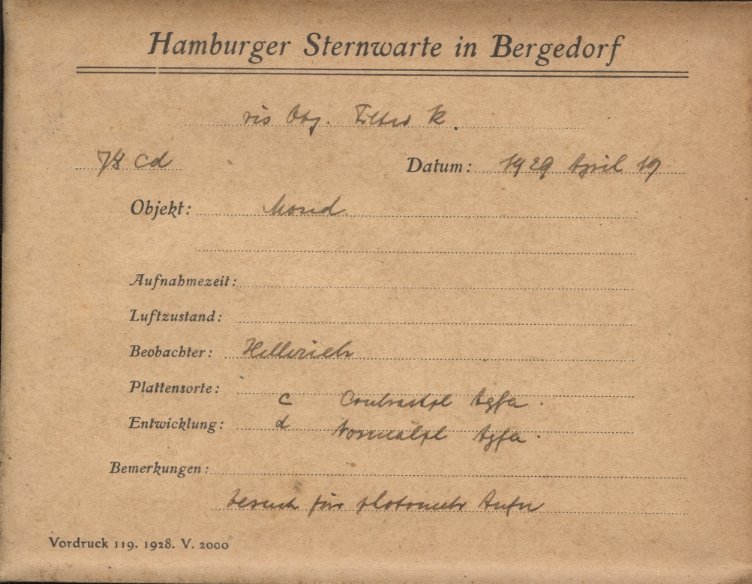 Hamburger Sternwarte in Bergedorf
vis Obj. Filter K.
78 cd Datum: 1929 April 19
Objekt: Mond
Aufnahmezeit:
Luftzustand:
Beobachter: Hellerich
Plattensorte:
c Contrastpl Agfa.
Entwicklung: d Normalpl Agfa.
Bemerkungen:
Versuch für photometr Aufn
Vordruck 119. 1928. V. 2000